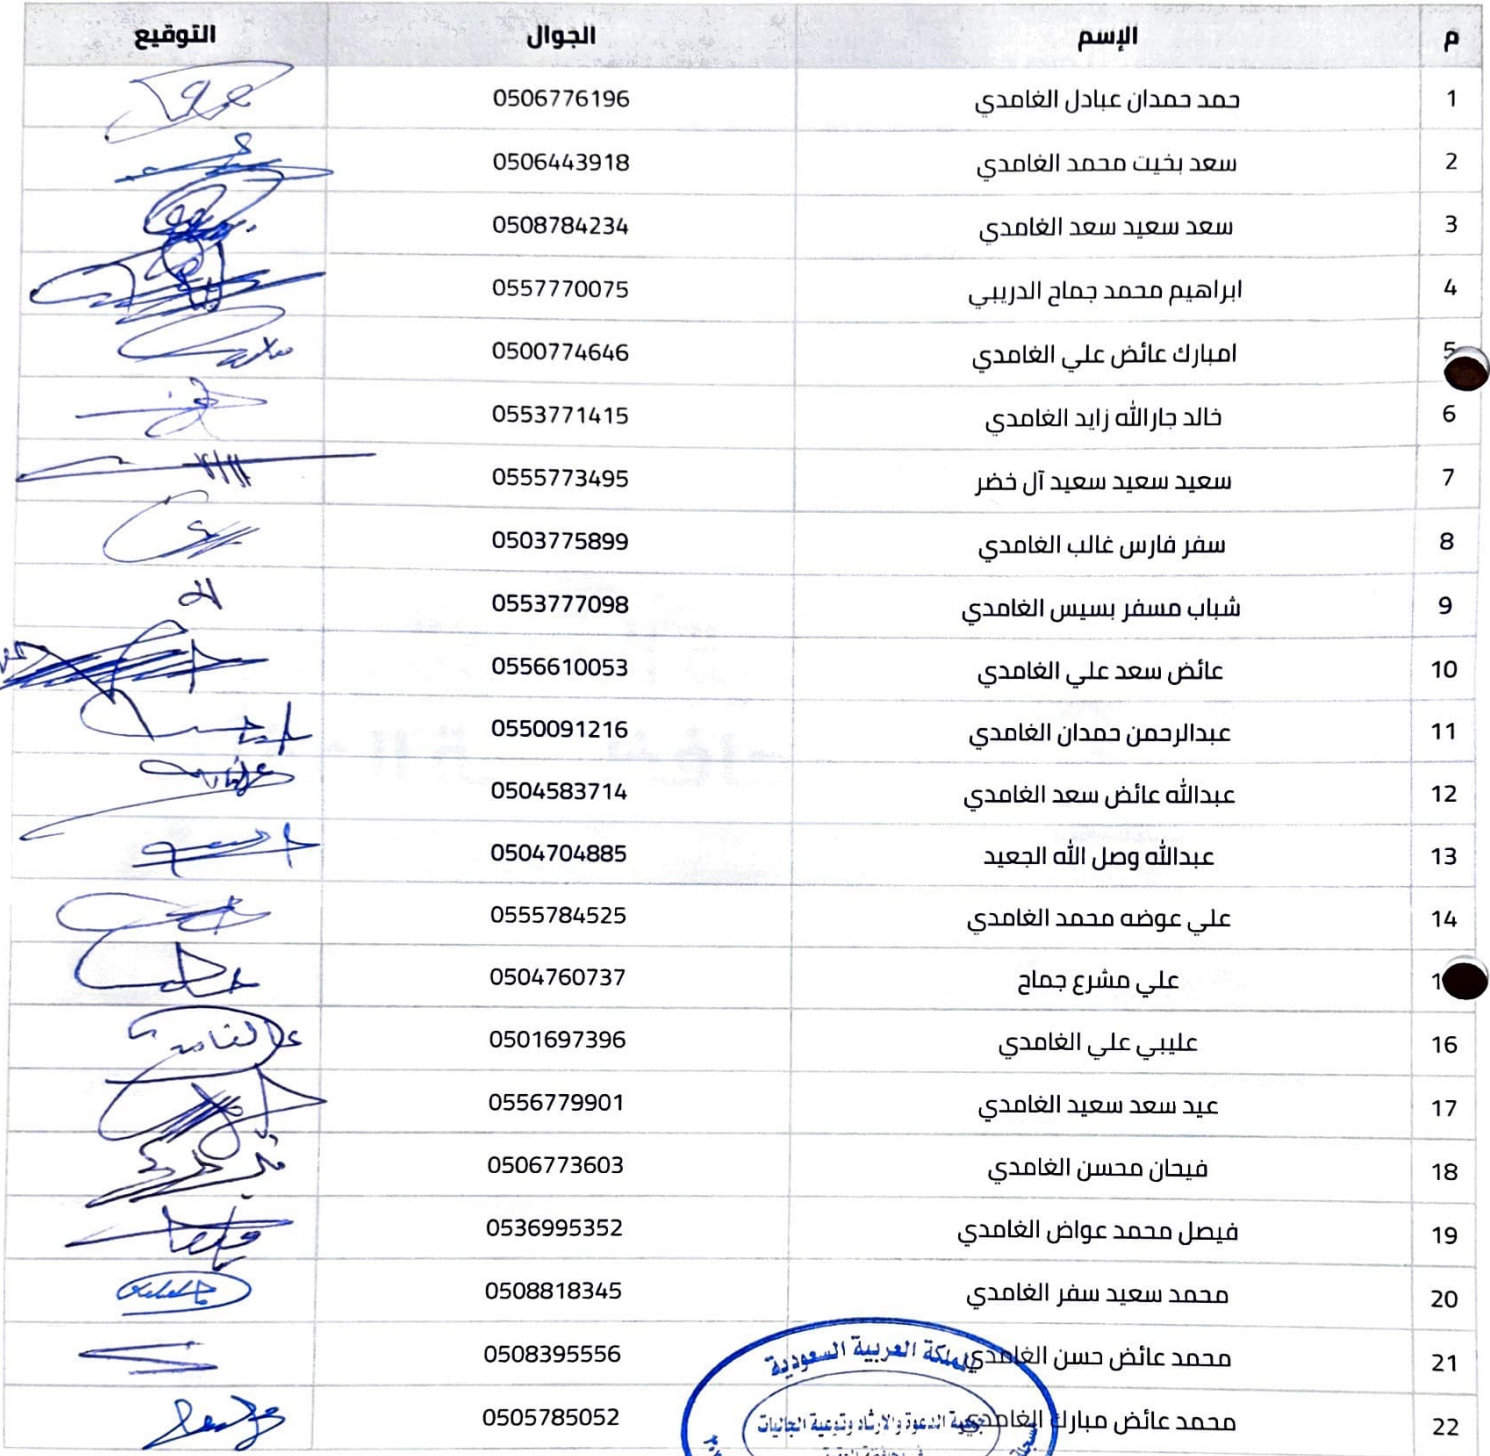 م الإسم الجوال التوقيع
1 حمد حمدان عبادل الغامدي 0506776196
2 سعد بخيت محمد الغامدي 0506443918
3 سعد سعيد سعد الغامدي 0508784234
4 ابراهيم محمد جماح الدريبي 0557770075
5 امبارك عائض علي الغامدي 0500774646
6 خالد جارالله زايد الغامدي 0553771415
7 سعيد سعيد سعيد آل خضر 0555773495
8 سفر فارس غالب الغامدي 0503775899
9 شباب مسفر بسيس الغامدي 0553777098
10 عائض سعد علي الغامدي 0556610053
11 عبدالرحمن حمدان الغامدي 0550091216
12 عبدالله عائض سعد الغامدي 0504583714
13 عبدالله وصل الله الجعيد 0504704885
14 علي عوضه محمد الغامدي 0555784525
1 علي مشرع جماح 0504760737
16 عليبي علي الغامدي 0501697396
17 عيد سعد سعيد الغامدي 0556779901
18 فيحان محسن الغامدي 0506773603
19 فيصل محمد عواض الغامدي 0536995352
20 محمد سعيد سفر الغامدي 0508818345
21 محمد عائض حسن الغامدي 0508395556
22 محمد عائض مبارك الغامدي 0505785052
المملكة العربية السعودية
جمعية الدعوة والارشاد وتوعية الجاليات